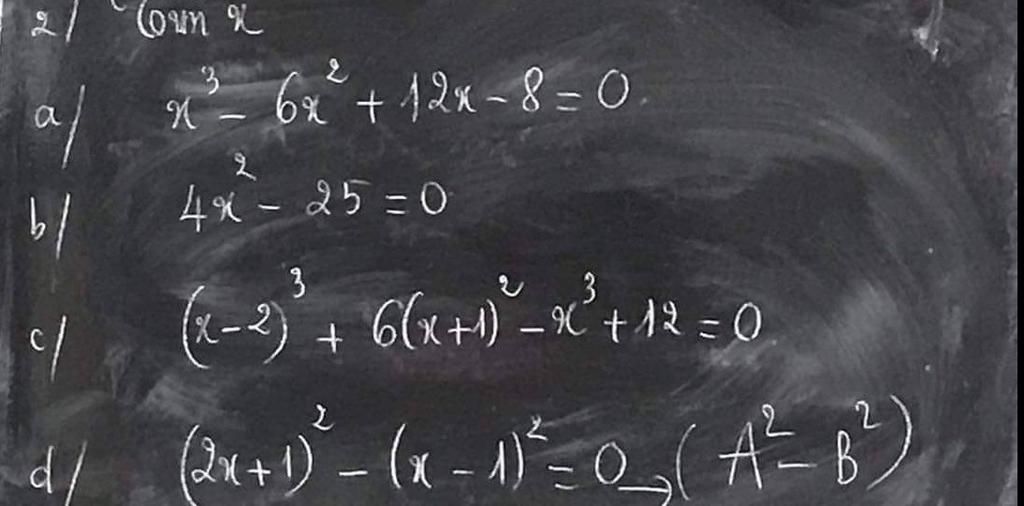 2/ Tìm x
a/ x³ - 6x² + 12x - 8 = 0
b/ 4x² - 25 = 0
c/ (x-2)³ + 6(x+1)² - x³ + 12 = 0
d/ (2x+1)² - (x-1)² = 0 → (A² - B²)